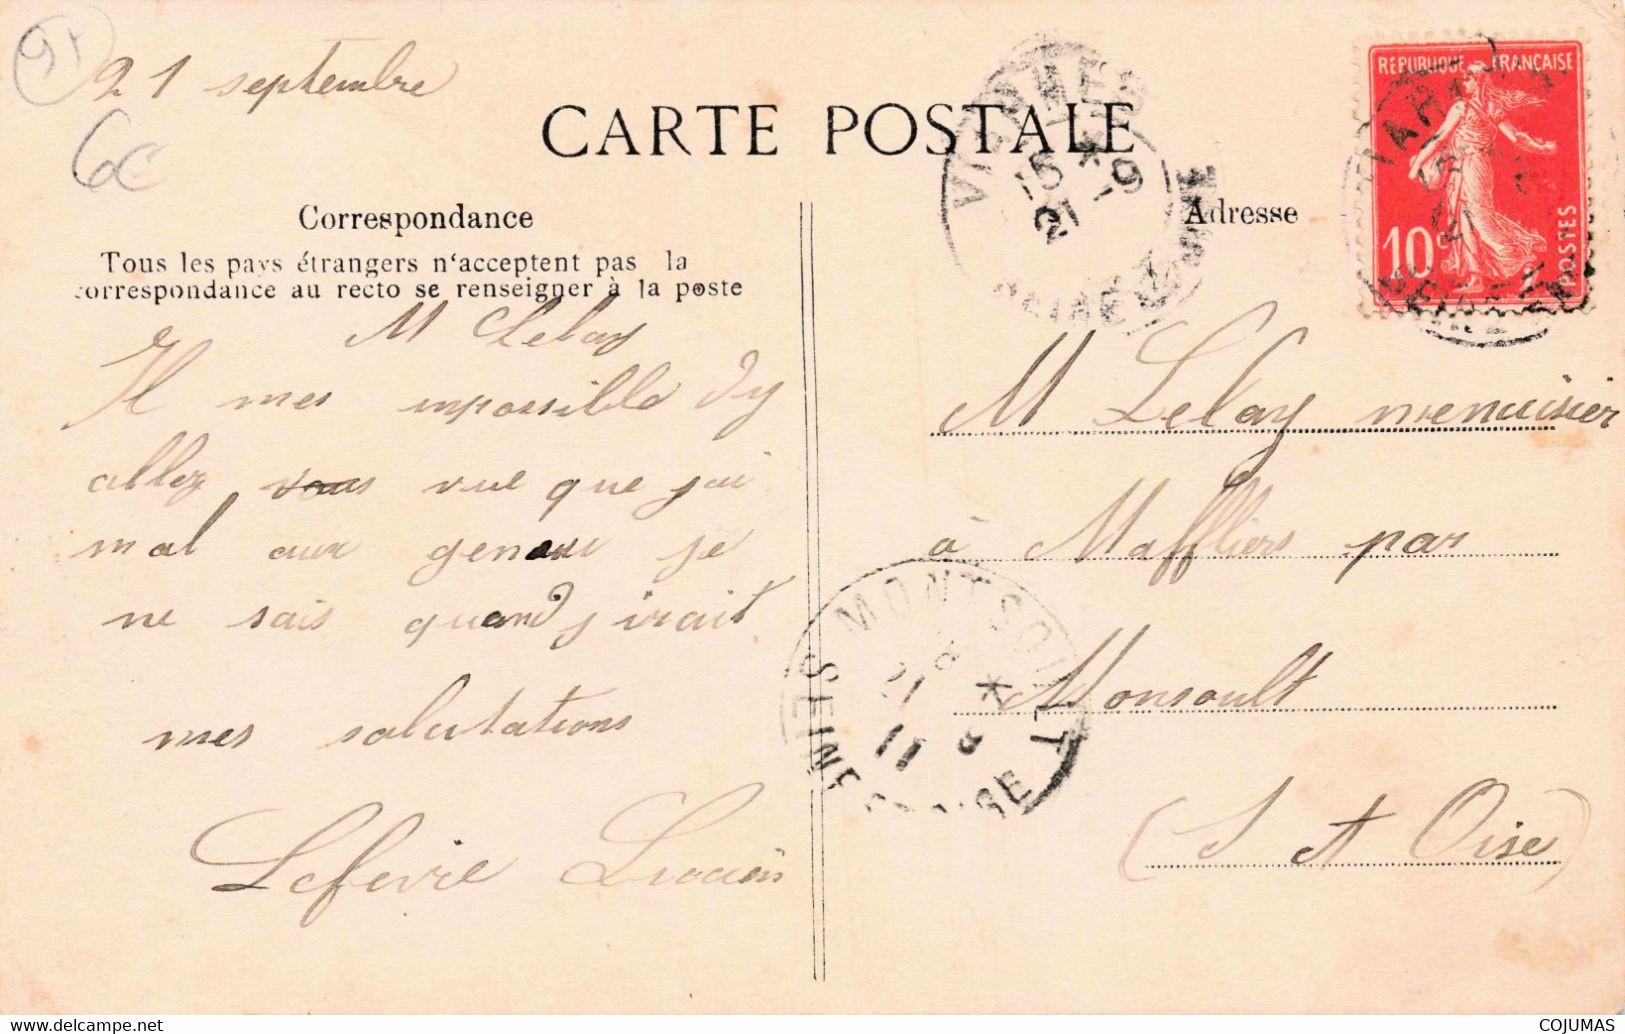 91
21 septembre
6€
CARTE POSTALE
Correspondance
Tous les pays étrangers n'acceptent pas la
correspondance au recto se renseigner à la poste
M Lelay
Il mes impossible d'y
allez vous vue que j'ai
mal aux genoux je
ne sais quand j'irait
mes salutations
Lefevre Lucien
Adresse
REPUBLIQUE FRANÇAISE
10c
POSTES
M Lelay menuisier
à Maffliers par
Monsoult
(S et Oise)
MONTSOULT
SEINE ET OISE
8
21
* 8
11
15 *
21 - 9
SEINE
www.delcampe.net
COJUMAS